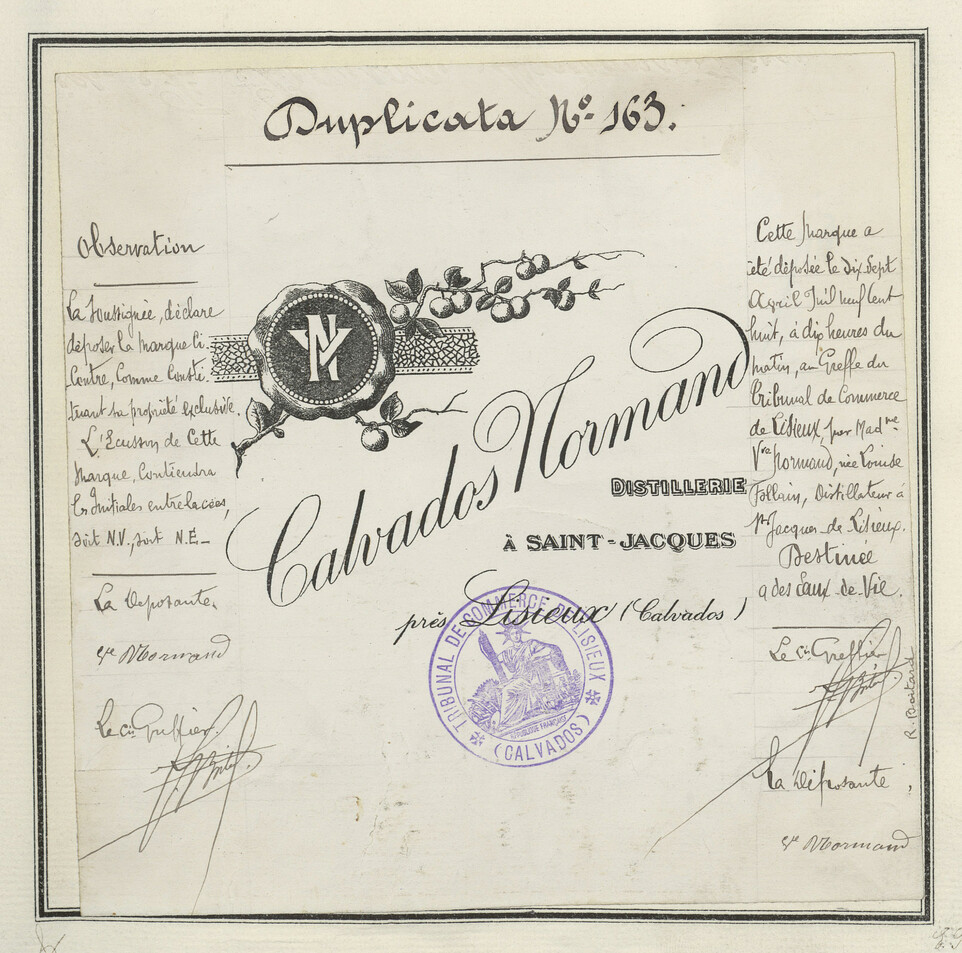 Duplicata Nº 163.
Observation
La Soussignée, déclare
déposer la marque ci-
Contre, Comme Consti-
tuant sa propriété exclusive.
L'Ecusson de Cette
Marque, Contiendra
les Initiales entrelacées,
soit N.V., soit N.E_
La Deposante.
Vve Normand
Le Cis Greffier
NV
Calvados Normand
DISTILLERIE
À SAINT-JACQUES
près Lisieux (Calvados)
TRIBUNAL DE COMMERCE DE LISIEUX
RÉPUBLIQUE FRANÇAISE
(CALVADOS)
Cette Marque a
été déposée le dix Sept
Avril Mil neuf Cent
huit, à dix heures du
matin, au Greffe du
Tribunal de Commerce
de Lisieux, par Madme
Vve Normand, née Louise
Follain, Distillateur à
St Jacques-de-Lisieux.
Destinée
a des Eaux-de-Vie.
Le Cis Greffier
R. Boitard
La Déposante,
Vve Normand